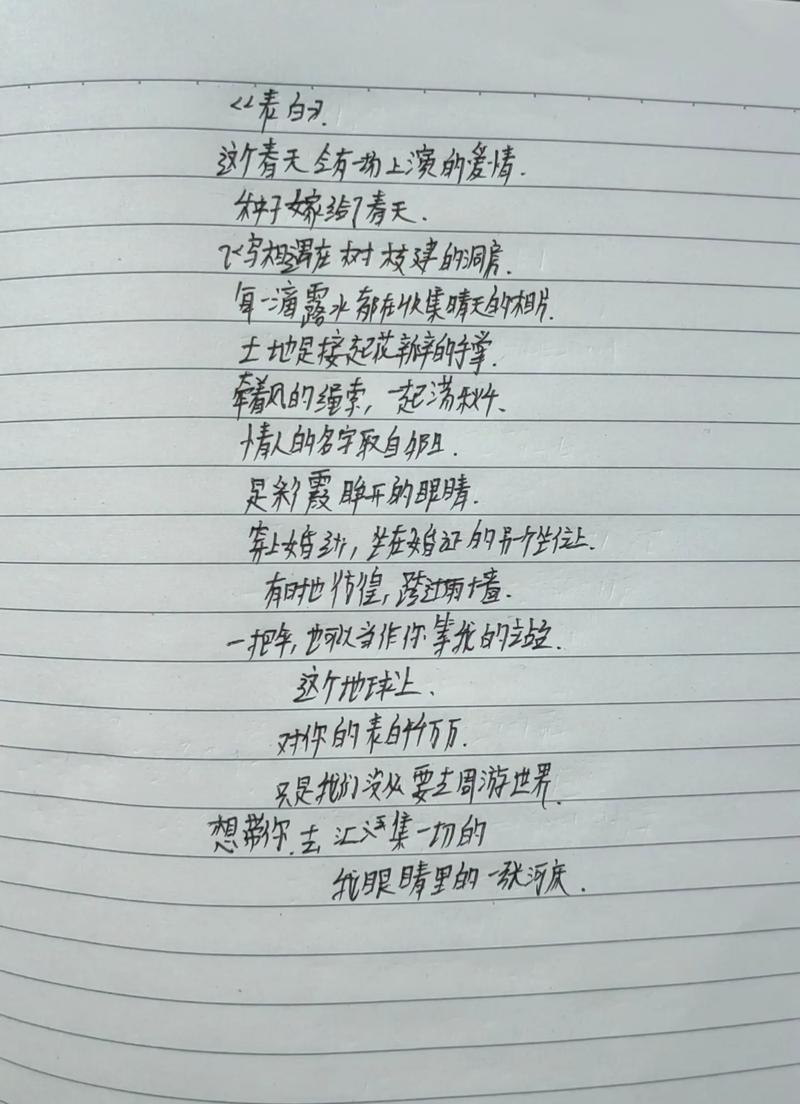 《表白》.
这个春天会有一场上演的爱情.
种子嫁给了春天.
飞鸟相遇在树枝建的洞房.
每一滴露水都在收集晴天的相片.
土地是接起花瓣的手掌.
牵着风的绳索，一起荡秋千.
情人的名字取自夕阳.
是彩霞睁开的眼睛.
穿上婚纱，坐在婚证的另一个坐位上.
有时也彷徨，跨过雨墙.
一把伞，也可以当作你等我的车站.
这个地球上.
对你的表白千千万万.
只是我们没必要去周游世界.
想带你.去汇集一切的
我眼睛里的一张河床.